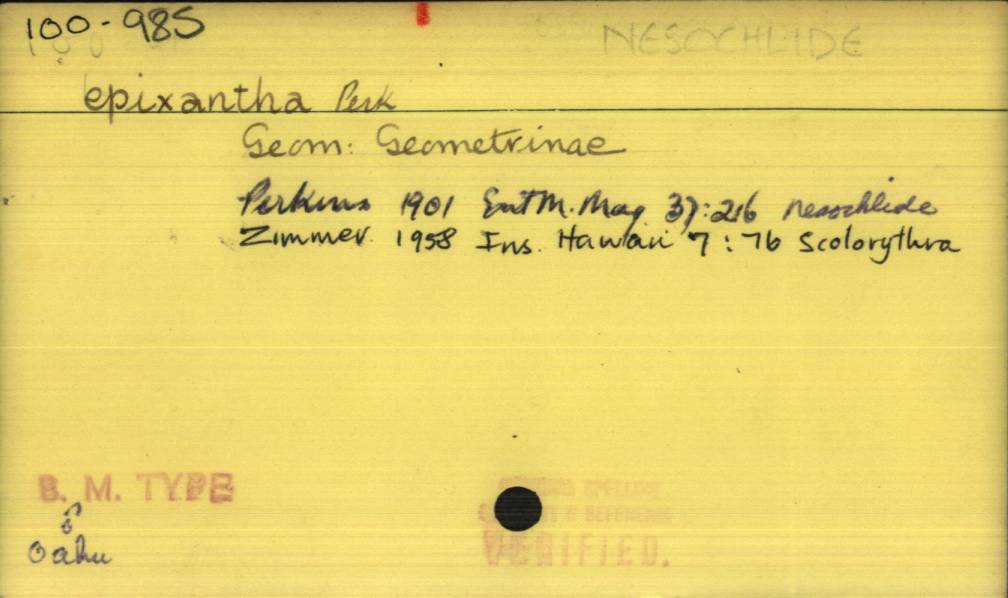 100-985
NESOCHLIDE
epixantha Perk
Geom: Geometrinae
Perkins 1901 Ent M. Mag 37:216 nesochlide
Zimmer. 1958 Ins. Hawaii 7:76 Scolorythra
B. M. TYPE
♂
Oahu
SPELLING
& REFERENCE
VERIFIED.